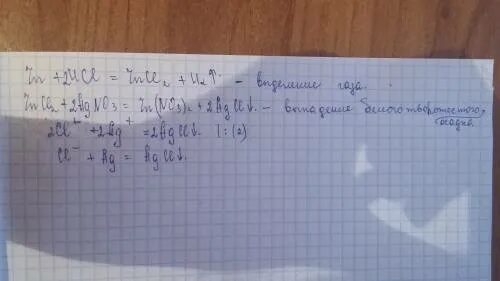 Zn + 2HCl = ZnCl₂ + H₂↑ - выделение газа.
ZnCl₂ + 2AgNO₃ = Zn(NO₃)₂ + 2AgCl↓ - выпадение белого творожестого
осадка.
2Cl⁻ + 2Ag⁺ = 2AgCl↓ | : (2)
Cl⁻ + Ag = AgCl↓.